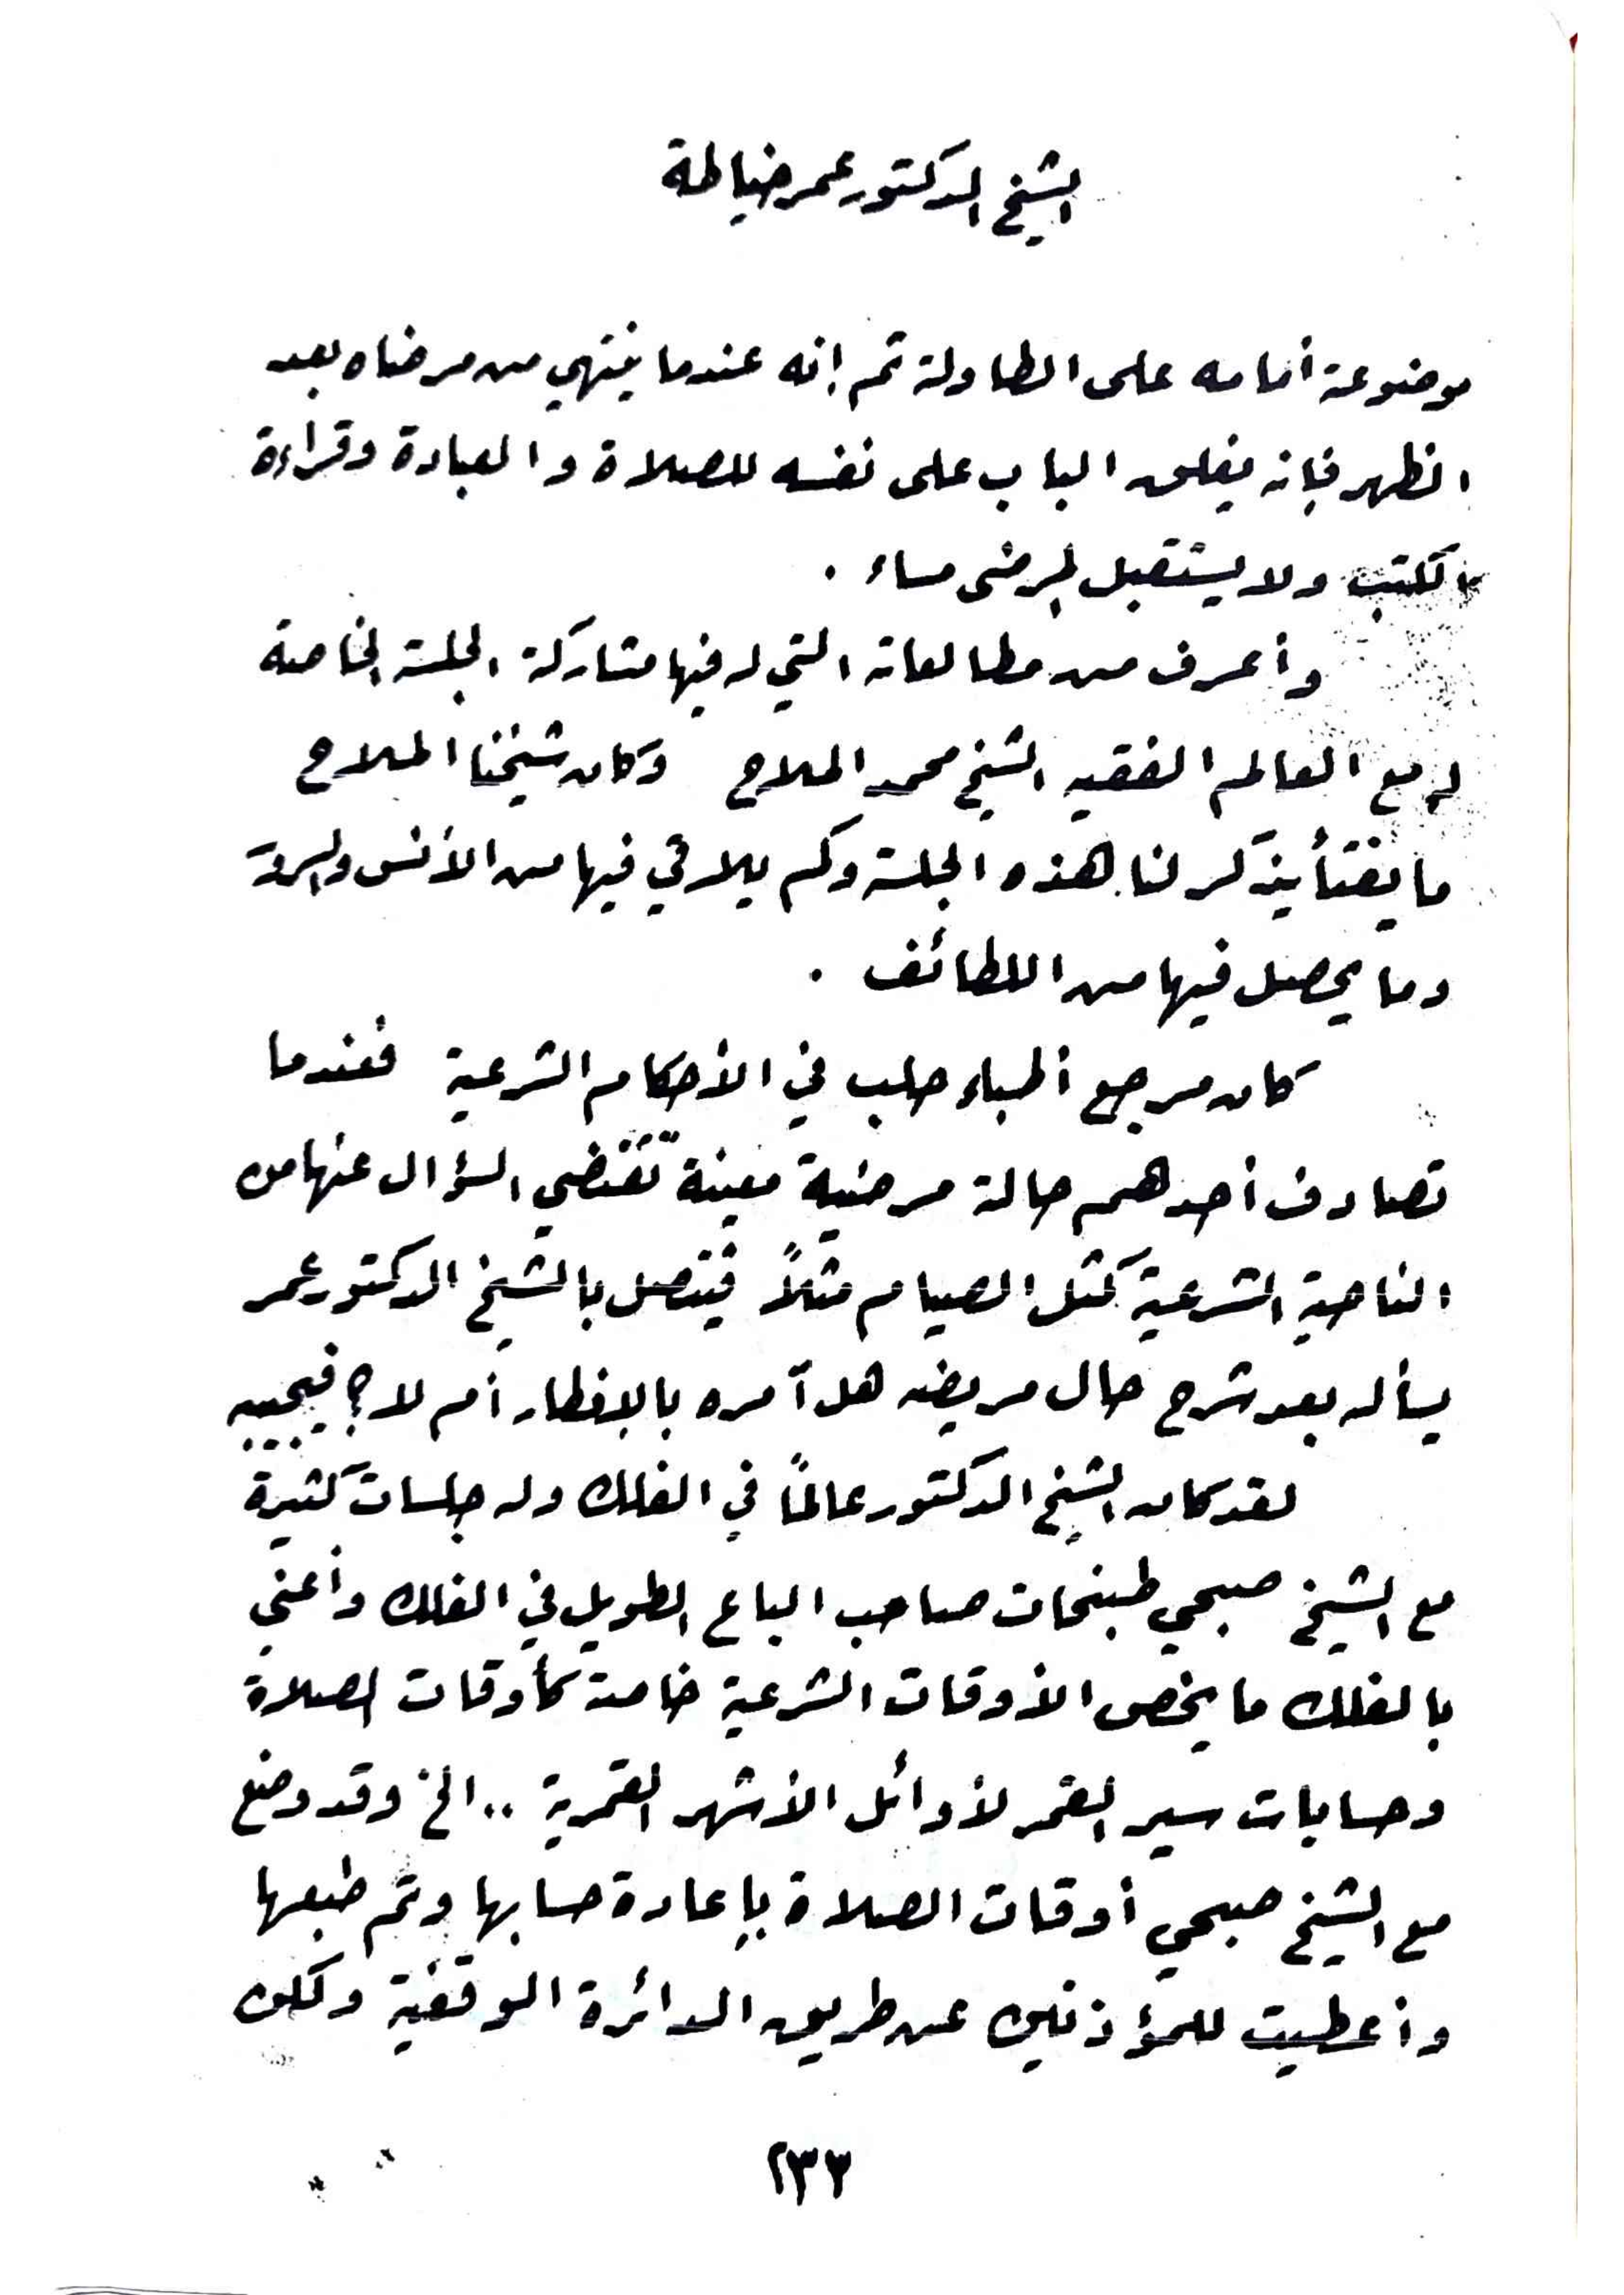 الشيخ الدكتور عمر خياطة
موضوعة أمامه على الطاولة ثم إنه عندما ينتهي من مرضاه بعد
الظهر فإنه يغلق الباب على نفسه للصلاة والعبادة وقراءة
الكتب ولا يستقبل المرضى مساء .
وأعرف من مطالعاته التي له فيها مشاركة الجلسة الخاصة
له مع العالم الفقيه الشيخ محمد الملاح وكان شيخنا الملاح
ما يفتأ يذكر لنا هذه الجلسة وكم يلاقي فيها من الأنس والسرور
وما يحصل فيها من اللطائف .
كان مرجع أطباء حلب في الأحكام الشرعية فعندما
تصادف أحدهم حالة مرضية معينة تقتضي السؤال عنها من
الناحية الشرعية كمثل الصيام مثلاً فيتصل بالشيخ الدكتور عمر
يسأله بعد شرح حال مريضه هل آمره بالإفطار أم لا ؟ فيجيبه
لقد كان الشيخ الدكتور عالماً في الفلك وله جلسات كثيرة
مع الشيخ صبحي طبنجات صاحب الباع الطويل في الفلك وأعني
بالفلك ما يخص الأوقات الشرعية خاصة كأوقات الصلاة
وحسابات سير القمر لأوائل الأشهر القمرية .. الخ وقد وضع
مع الشيخ صبحي أوقات الصلاة بإعادة حسابها وتم طبعها
وأعطيت للمؤذنين عن طريق الدائرة الوقفية ولكن
٢٣٣